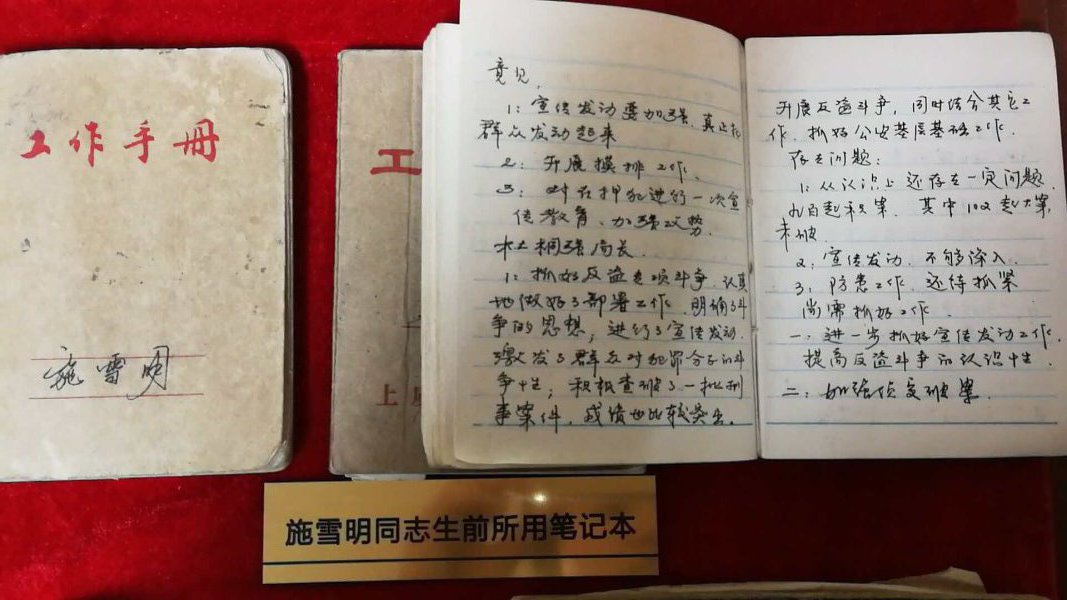 工作手册
施雪明
工
上
意见,
1: 宣传发动要加强, 真正把
群众发动起来
2: 开展摸排工作.
3: 对在押犯进行一次宣
传教育、加强攻势.
桐强局长.
1: 抓好反盗专项斗争, 认真
地做好了部署工作, 明确了斗
争的思想, 进行了宣传发动.
激发了群众对犯罪分子的斗
争性; 积极查破了一批刑
事案件, 成绩也比较突出.
开展反盗斗争, 同时结合其它工
作, 抓好公安基层基础工作.
存在问题:
1: 从认识上还存在一定问题.
九百起积案. 其中102起大案,
未破.
2: 宣传发动, 不够深入.
3: 防患工作, 还待抓紧
尚需抓好工作.
一: 进一步抓好宣传发动工作.
提高反盗斗争的认识性
二: 加强侦查破案.
施雪明同志生前所用笔记本